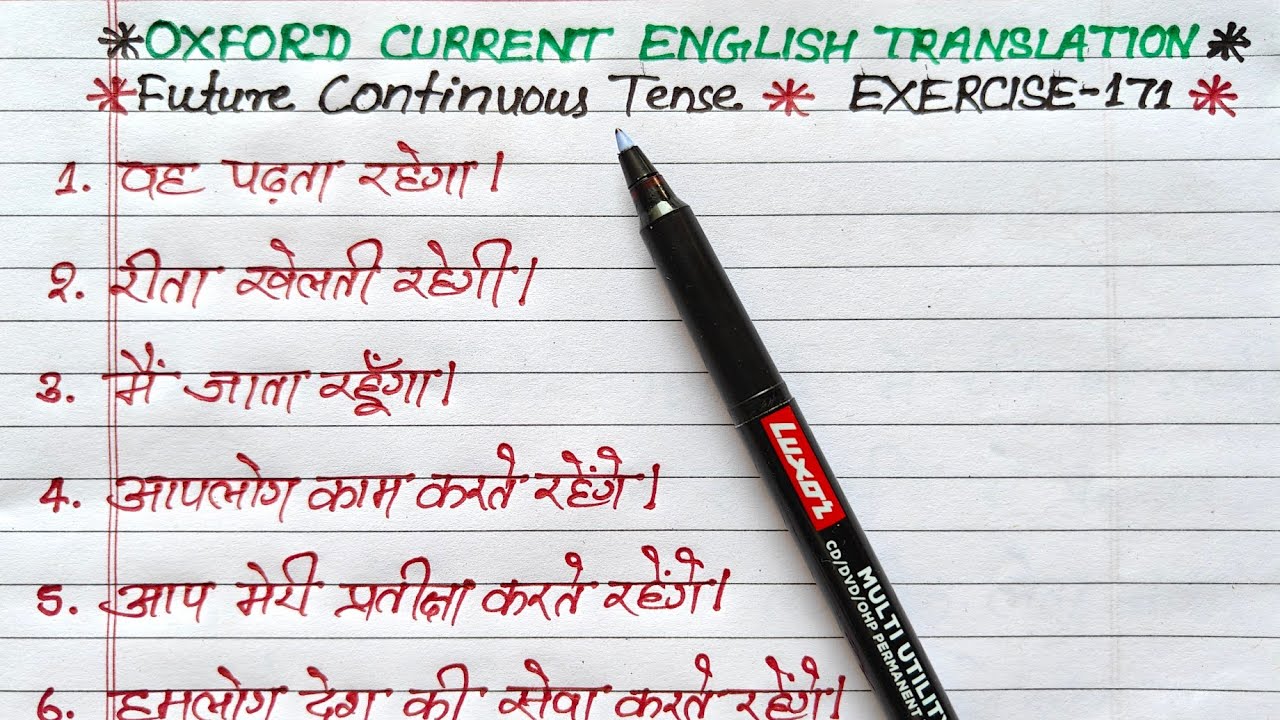 *OXFORD CURRENT ENGLISH TRANSLATION*
*Future Continuous Tense * EXERCISE-171 *
1. वह पढ़ता रहेगा।
2. रीता खेलती रहेगी।
3. मैं जाता रहूँगा।
4. आपलोग काम करते रहेंगे।
5. आप मेरी प्रतीक्षा करते रहेंगे।
6. हमलोग देश की सेवा करते रहेंगे।
Luxor
MULTI UTILITY
CD/DVD/OHP PERMANENT